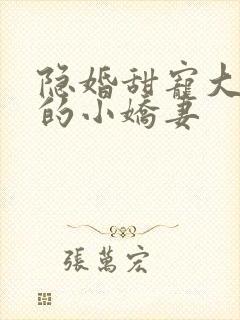 隐婚甜寵大
的小嬌妻
張萬宏